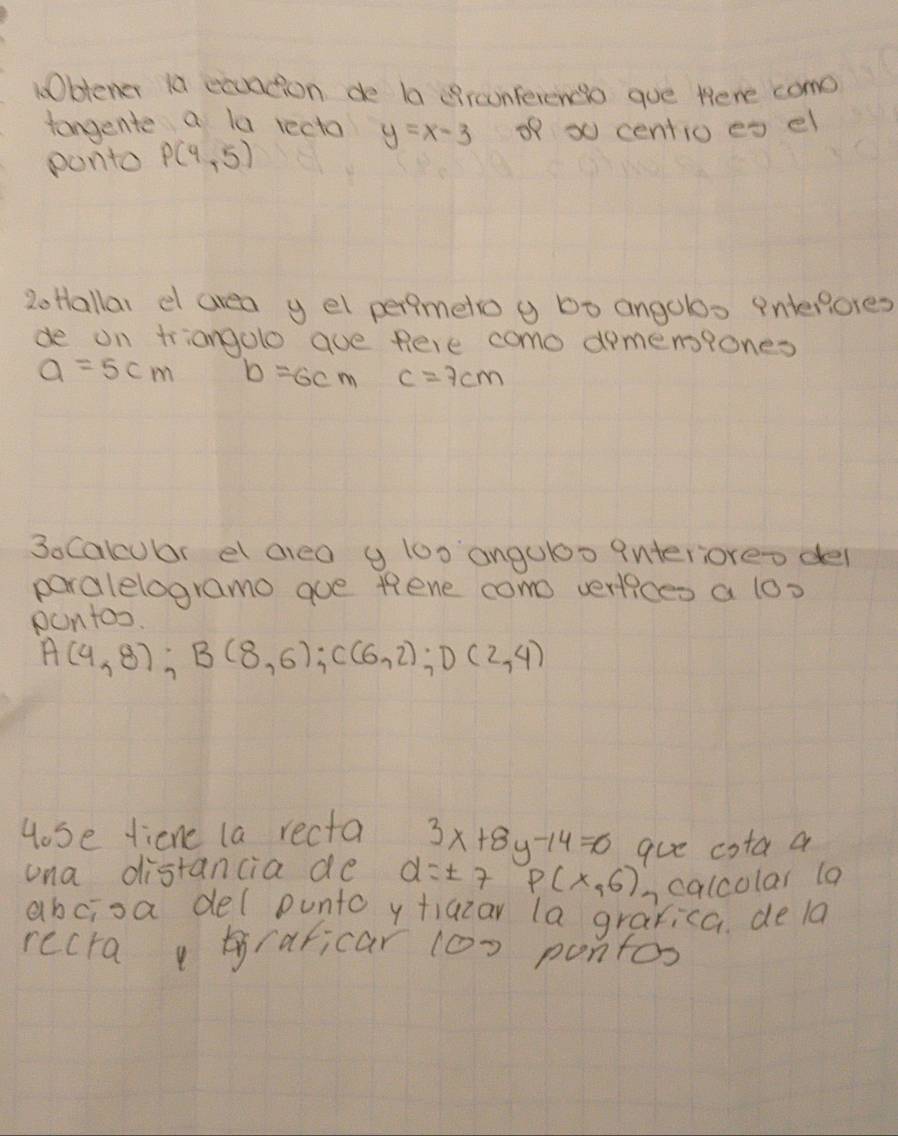 1.Obtener la ecuación de la circunferencia que tiene como
tangente a la recta y=x-3 si su centro es el
punto P(4,5)
2.Hallar el area y el perimetro y los angulos interiores
de un triangulo que tiene como dimensiones
a=5cm b=6cm c=7cm
3.Calcular el area y los angulos interiores del
paralelogramo que tiene como vertices a los
puntos.
A(4,8); B(8,6); C(6,2); D(2,4)
4.Se tiene la recta 3x+8y-14=0 que esta a
una distancia de d=±7 P(x,6), calcolar la
abcisa del punto y trazar la grafica. de la
recra y graficar los puntos